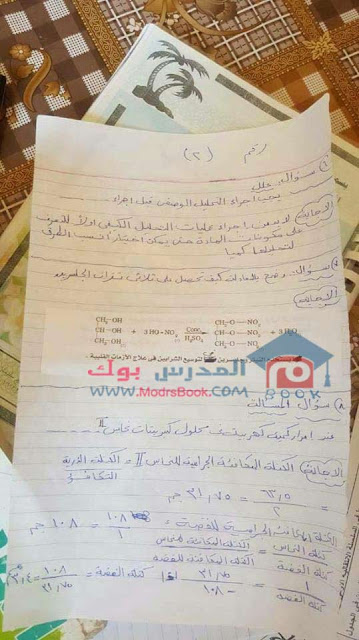 رقم (٢)
سؤال علل
يجب اجراء التحليل الوصفى قبل اجراء
الاجابة لا بد من اجراء عمليات التحليل الكيفى اولاً للتعرف
على مكونات المادة حتى يمكن اختيار انسب الطرق
لتحليلها كمياً
سؤال وضح بالمعادلات كيف تحصل على ثلاثى نيترات الجلسرين
الاجابة
CH₂–OH CH₂–O–NO₂
CH–OH + 3HO-NO₂ Conc. H₂SO₄ CH–O–NO₂ + 3H₂O
CH₂–OH CH₂–O–NO₂
لتوسيع الشرايين فى علاج الأزمات القلبية
المدرس بوك
www.ModrsBook.com
BOOK
٨ سؤال المسألة
عند امرار كمية كهربية فى محلول كبريتات نحاس II
الاجابة الكتلة المكافئة الجرامية للنحاس II = الكتلة الذرية
التكافؤ
= ٦٣,٥ / ٢ = ٣١,٧٥ جم
الكتلة المكافئة الجرامية للفضة = ١٠٨ / ١ = ١٠٨ جم
كتلة النحاس / كتلة الفضة = الكتلة المكافئة للنحاس / الكتلة المكافئة للفضة
١ / كتلة الفضة = ٣١,٧٥ / ١٠٨ كتلة الفضة = ١٠٨ / ٣١,٧٥ = ٣,٤ جم